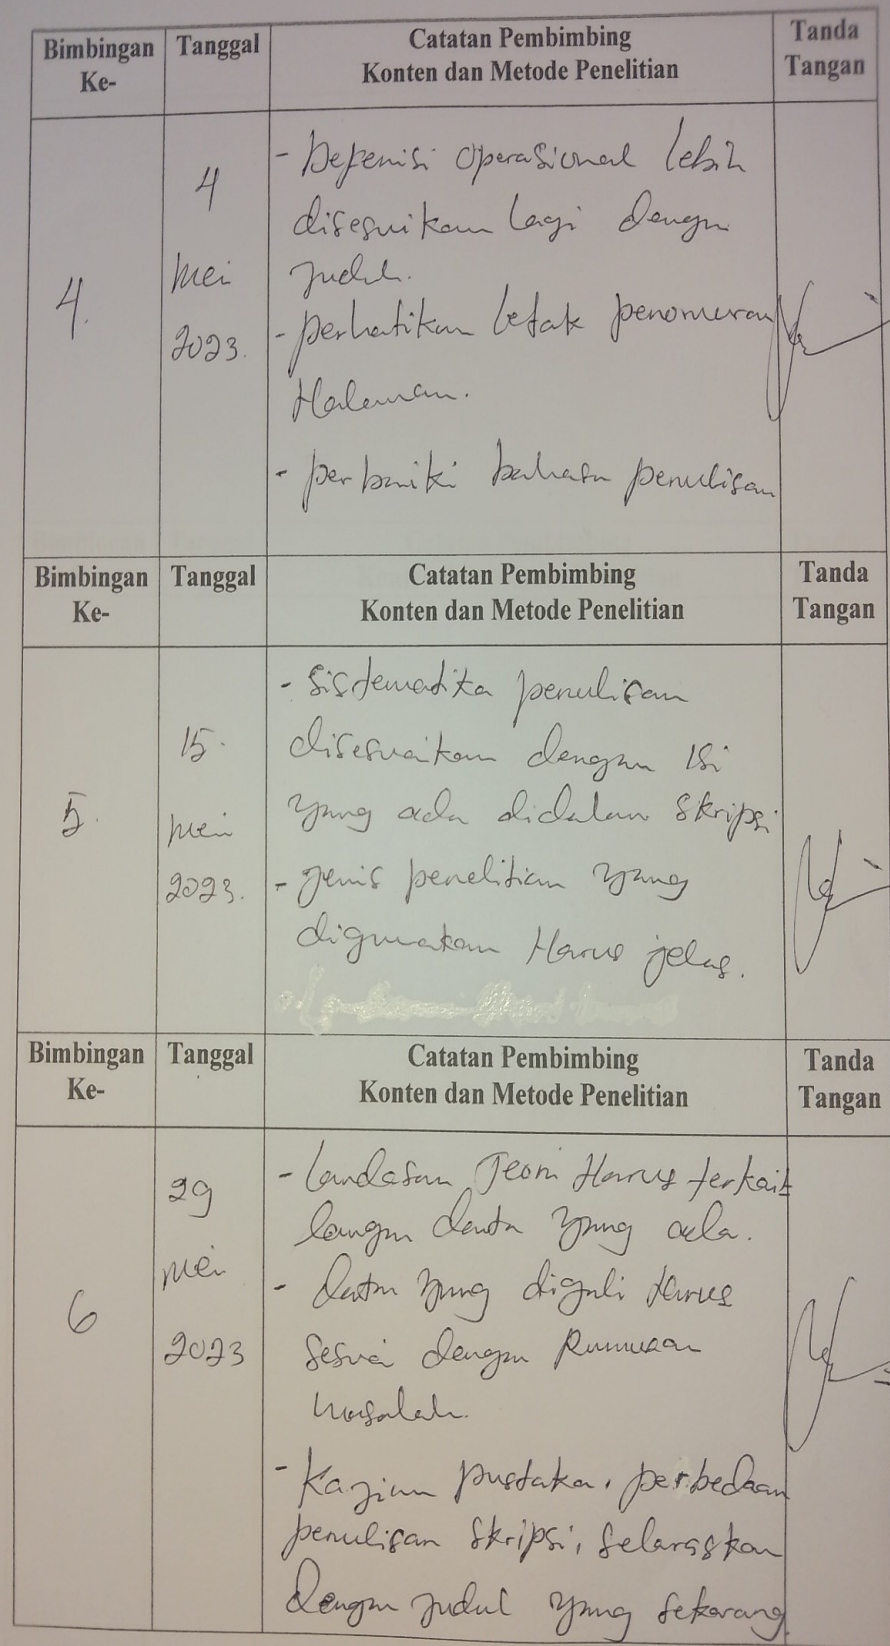 Bimbingan Ke-
Tanggal
Catatan Pembimbing
Konten dan Metode Penelitian
Tanda Tangan
4.
4
Mei
2023.
- Defenisi operasional lebih
disesuikan lagi dengan
judul.
- perhatikan letak penomoran
Halaman.
- perbaiki bahasa penulisan
Bimbingan Ke-
Tanggal
Catatan Pembimbing
Konten dan Metode Penelitian
Tanda Tangan
5.
15.
Mei
2023.
- Sistematika penulisan
disesuaikan dengan Isi
yang ada didalam skripsi
- Jenis penelitian yang
digunakan Harus jelas.
Bimbingan Ke-
Tanggal
Catatan Pembimbing
Konten dan Metode Penelitian
Tanda Tangan
6
29
Mei
2023
- Landasan Teori Harus terkait
data yang ada.
- Data yang digali Harus
sesuai dengan Rumusan
Masalah.
- Kajian pustaka, perbedaan
penulisan skripsi, selaraskan
Dengan judul yang sekarang.